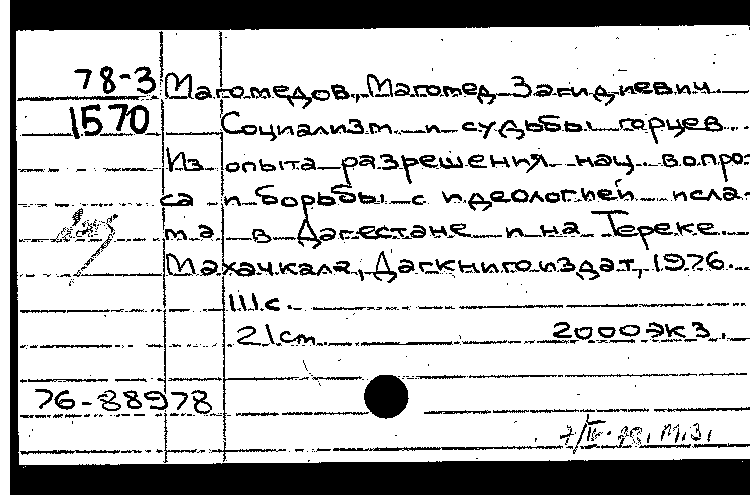 78-3 Магомедов, Магомед Загидиевич
1570 Социализм и судьбы горцев
Из опыта разрешения нац. вопро-
са и борьбы с идеологией исла-
ма в Дагестане и на Тереке
Махачкала, Дагкнигоиздат, 1976.
111с.
21cm 2000экз.
76-88978
М.З.